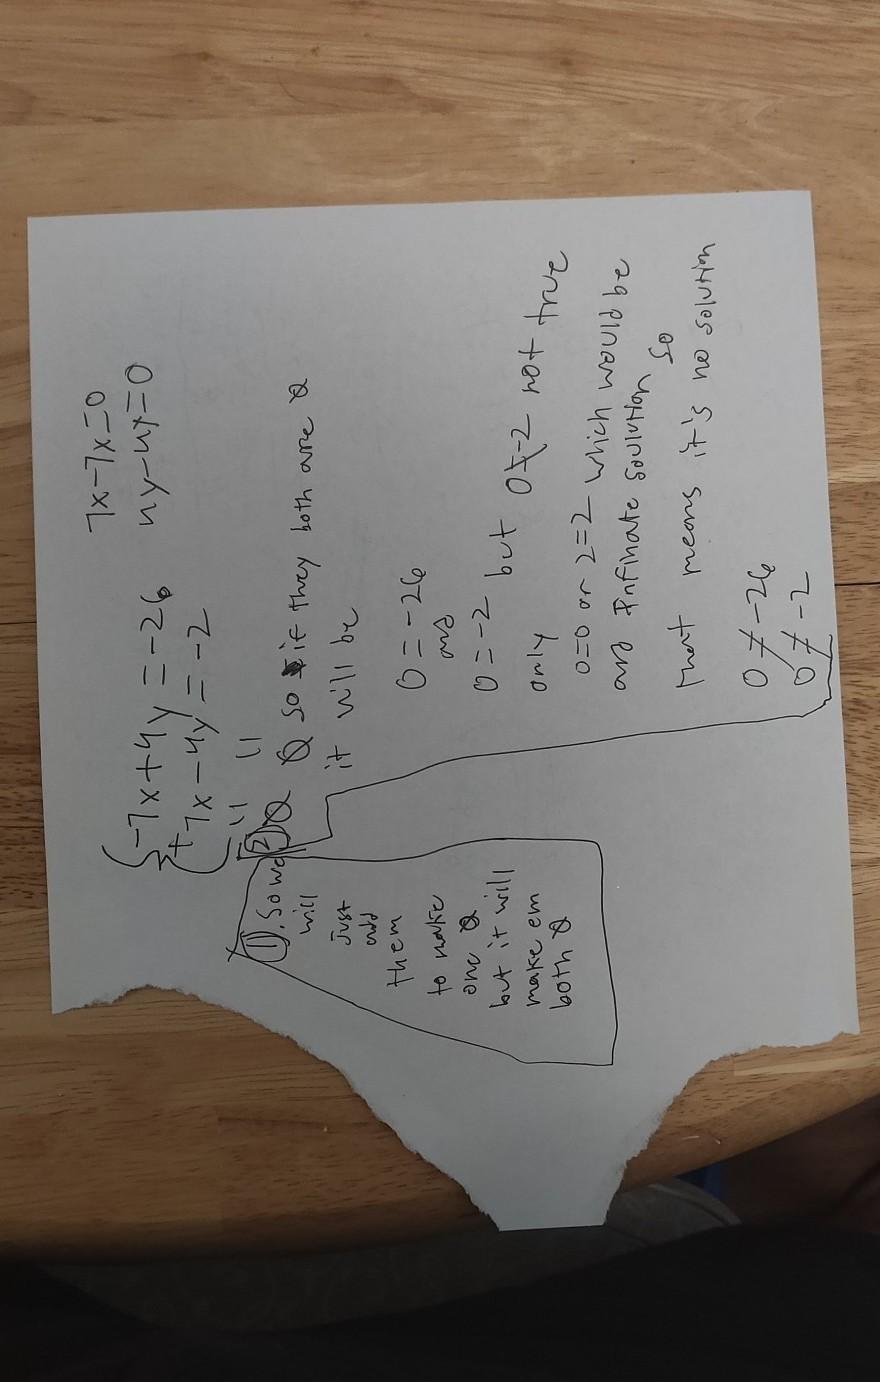 {-7x+4y=-26
+7x-4y=-2
7x-7x=0
4y-4y=0
②0 0 so if they both are 0
it will be
0=-26
and
0=-2 but 0≠-2 not true
only
0=0 or 2=2 which would be
and Infinate soulution so
that means it's no solution
0≠-26
0≠-2
①. So we
will
Just
add
them
to make
one 0
but it will
make em
both 0